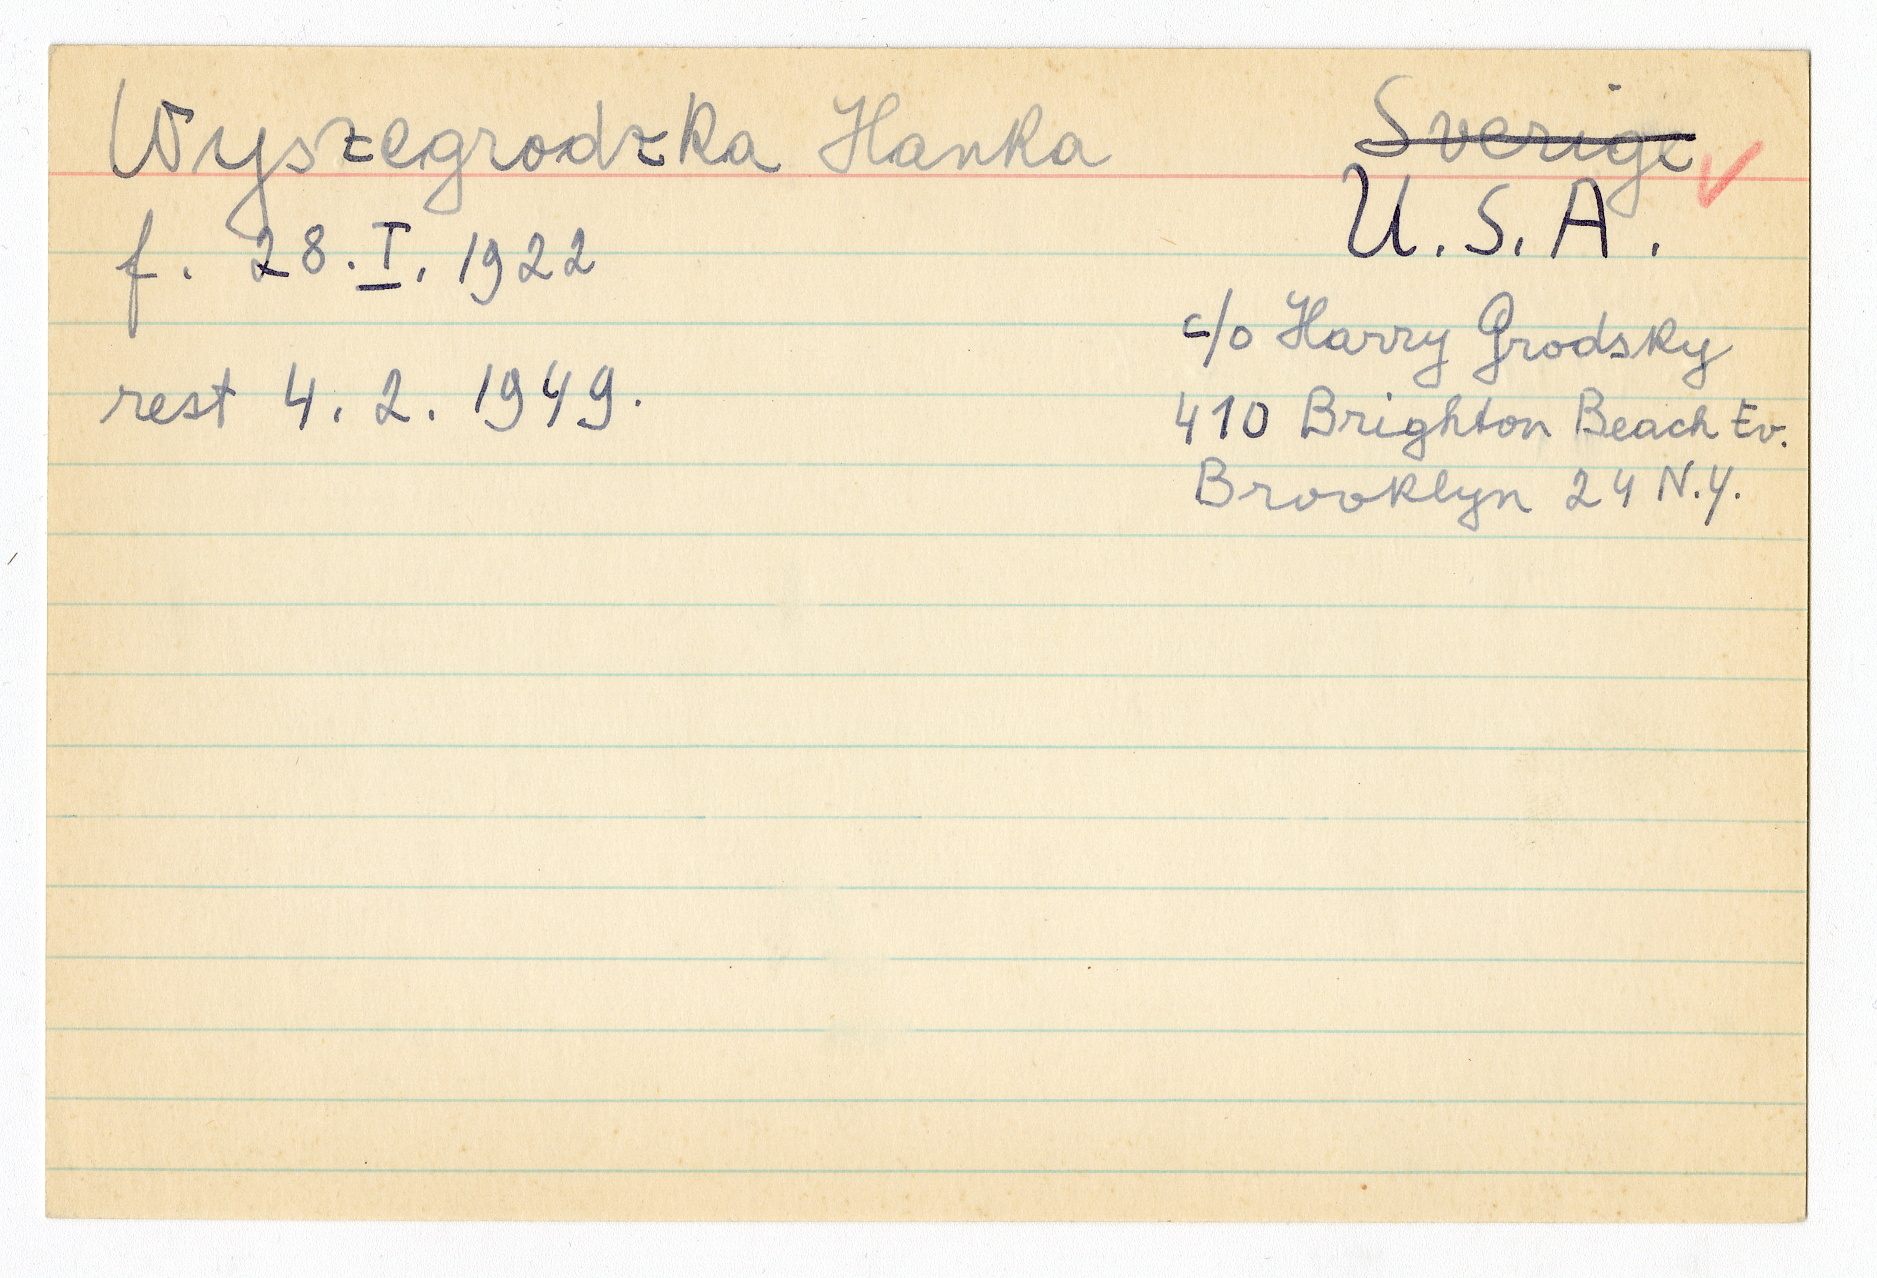 Wyszegrodzka Hanka Sverige
U.S.A.
f. 28.I.1922
c/o Harry Grodsky
rest 4.2.1949.
410 Brighton Beach Ev.
Brooklyn 24 N.Y.